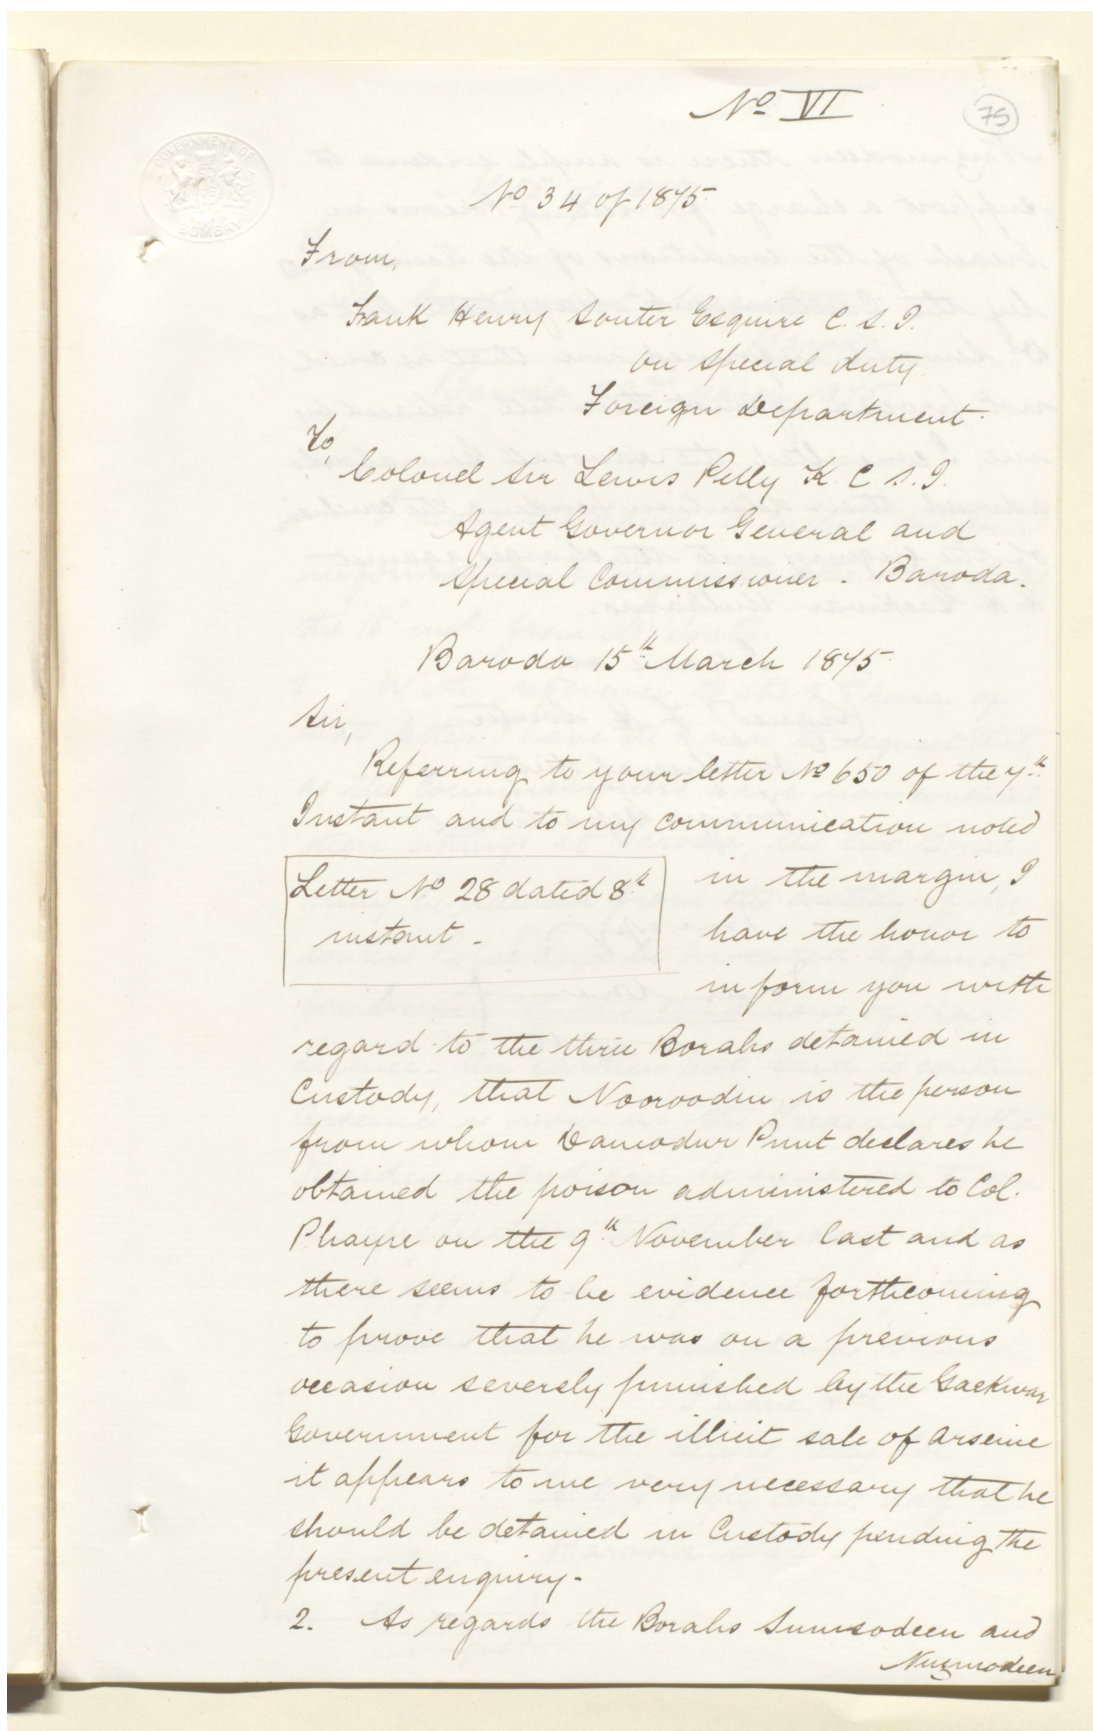 No VI
75
GOVERNMENT OF
BOMBAY
No 34 of 1875.
From,
Frank Henry Souter Esquire C. S. I.
on special duty
Foreign Department.
To,
Colonel Sir Lewis Pelly K. C S. I.
Agent Governor General and
Special Commissioner. Baroda.
Baroda 15th March 1875.
Sir,
Referring to your letter No 650 of the 7th
Instant and to my communication noted
Letter No 28 dated 8th
instant.
in the margin, I
have the honor to
inform you with
regard to the three Borahs detained in
Custody, that Nooroodin is the person
from whom Damodur Punt declares he
obtained the poison administered to Col.
Phayre on the 9th November last and as
there seems to be evidence forthcoming
to prove that he was on a previous
occasion severely punished by the Gaekwar
Government for the illicit sale of Arsenic
it appears to me very necessary that he
should be detained in Custody pending the
present enquiry.
2. As regards the Borahs Sumsodeen and
Nuzmodeen